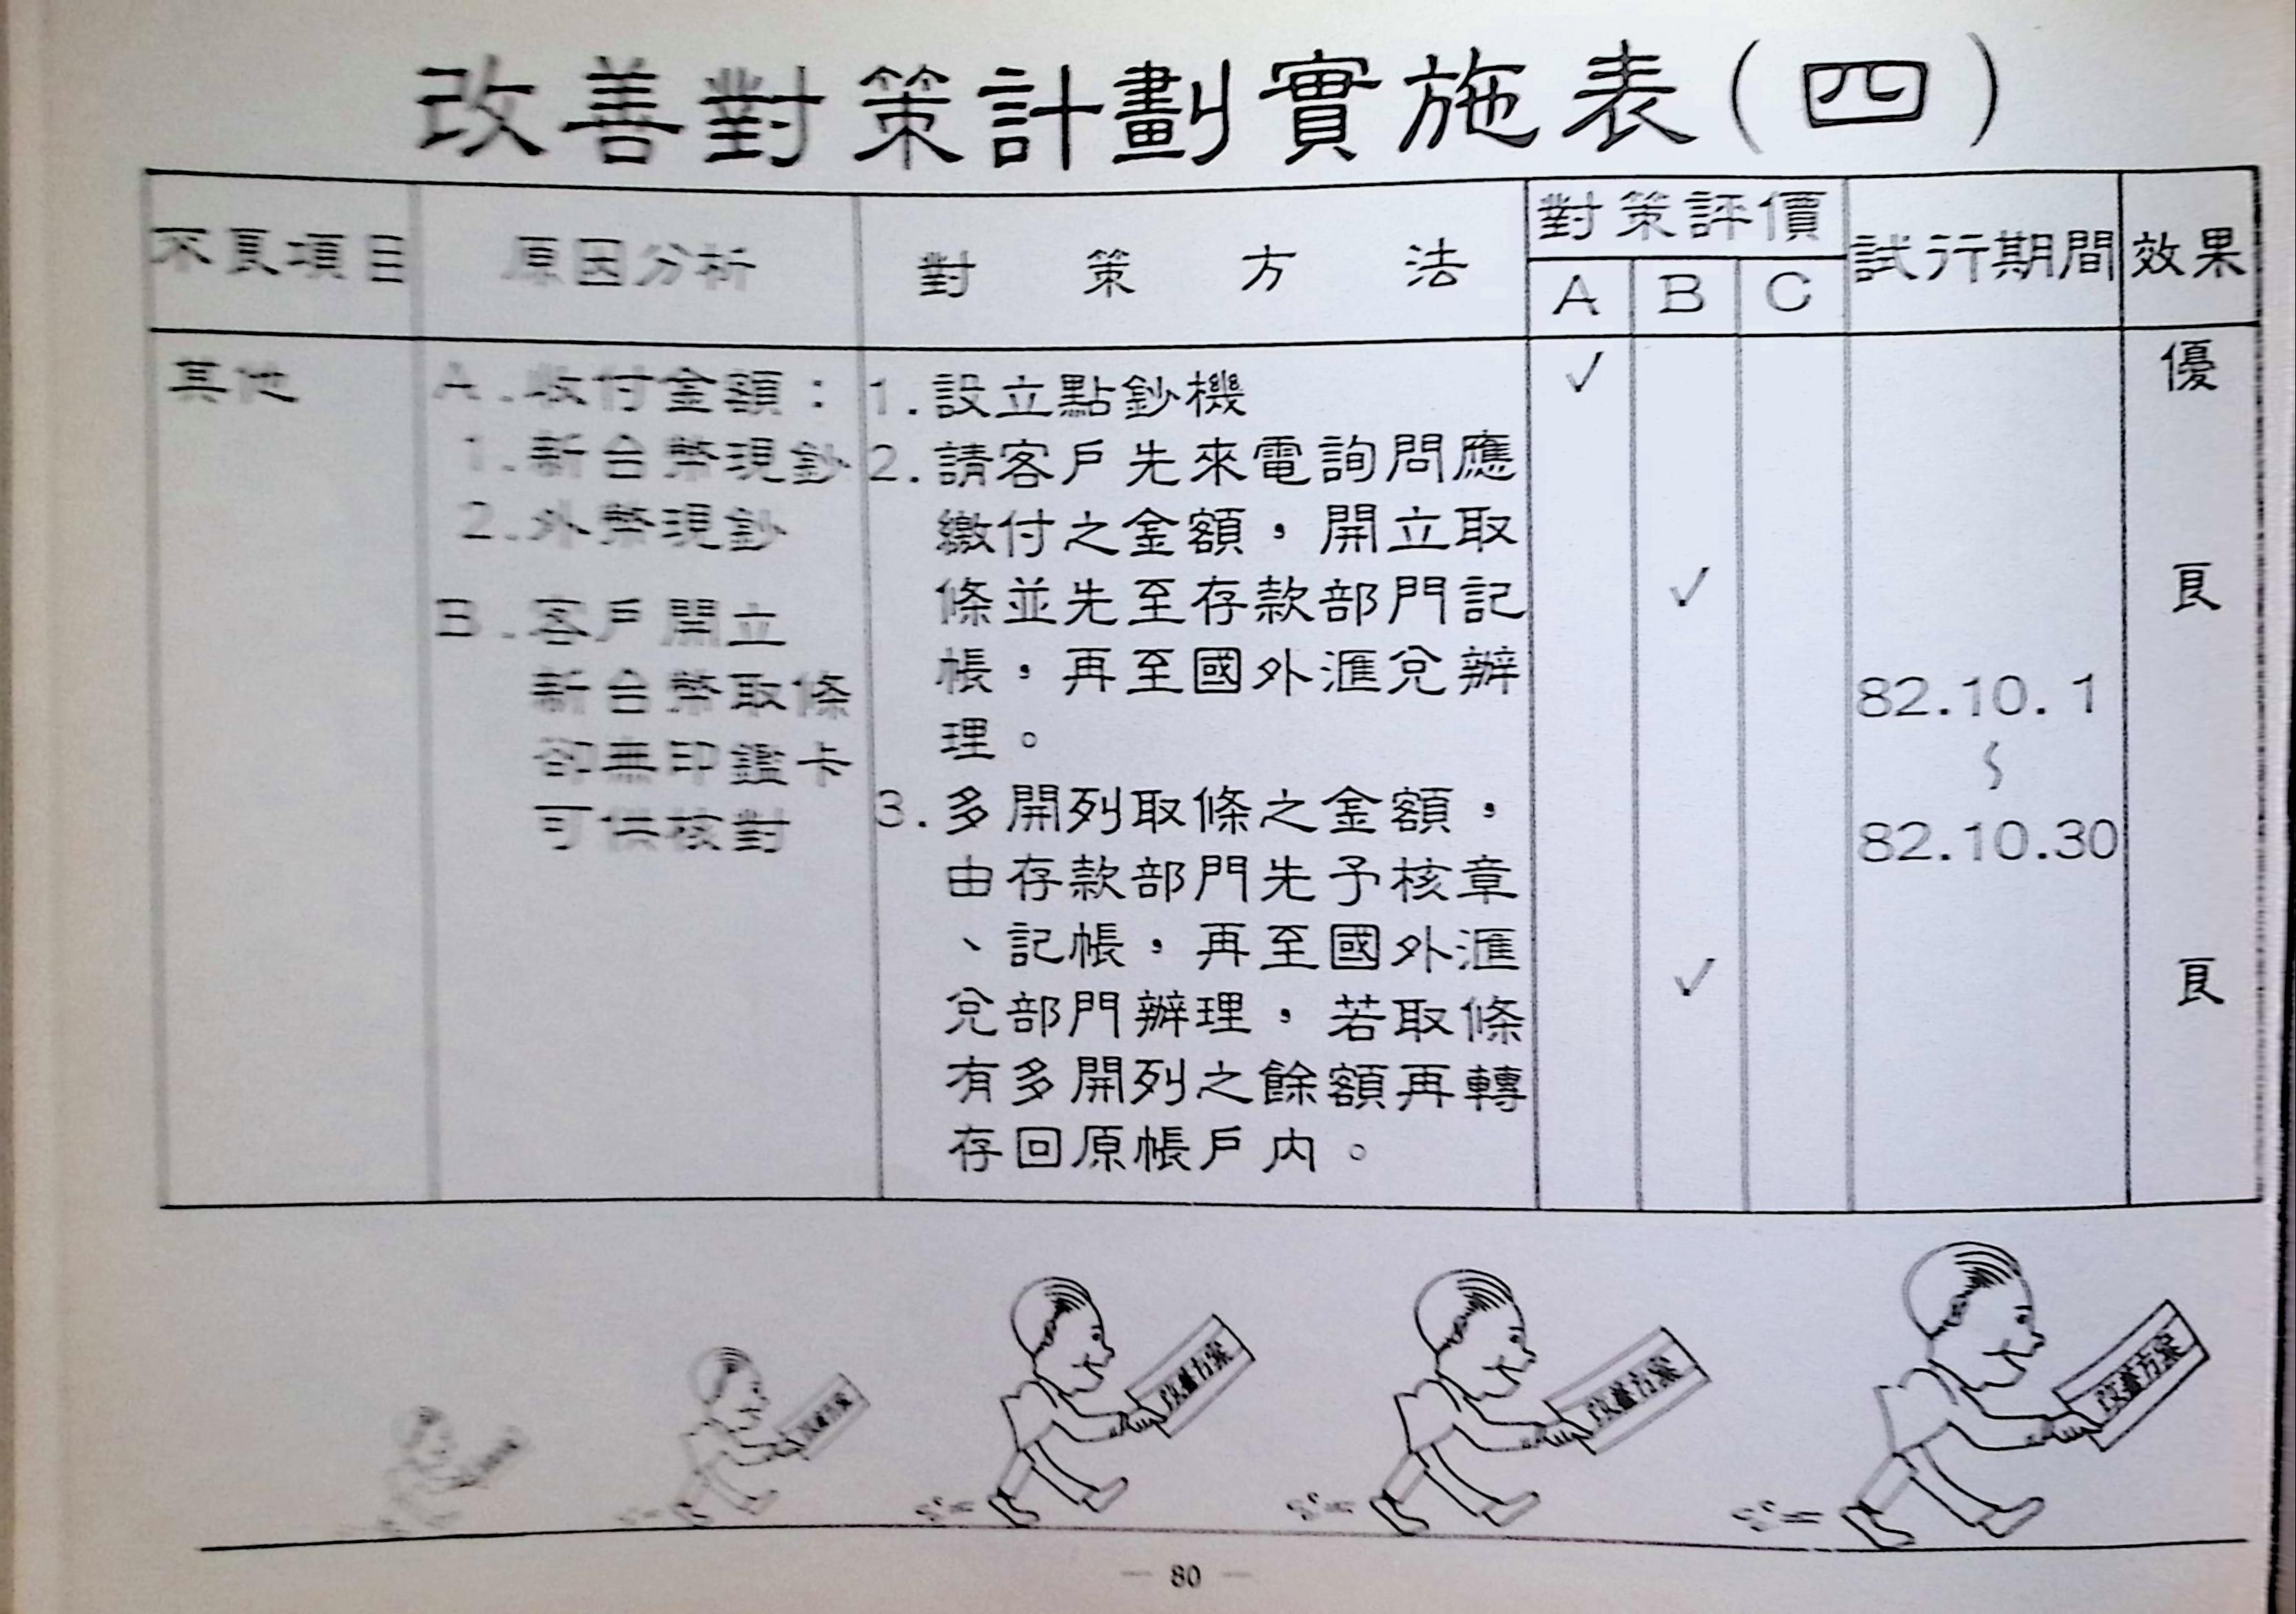 改善對策計劃實施表(四)
不良項目
原因分析
對策方法
對策評價
A B C
試行期間
效果
其他
A.收付金額:
1.新台幣現鈔
2.外幣現鈔
B.客戶開立
新台幣取條
卻無印鑑卡
可供核對
1.設立點鈔機
2.請客戶先來電詢問應
繳付之金額,開立取
條並先至存款部門記
帳,再至國外滙兌辦
理。
3.多開列取條之金額,
由存款部門先予核章
、記帳,再至國外滙
兌部門辦理,若取條
有多開列之餘額再轉
存回原帳戶內。
✓
✓
✓
82.10.1
~
82.10.30
優
良
良
改善方案
改善方案
改善方案
改善方案
— 80 —